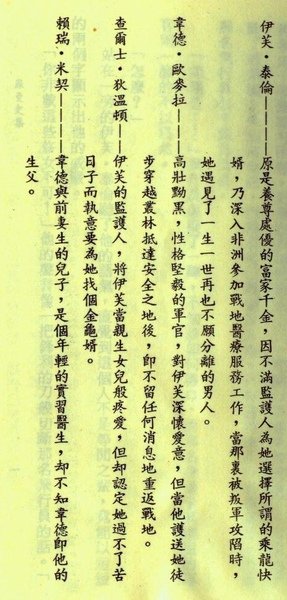 伊芙・泰倫————原是養尊處優的富家千金，因不滿監護人為她選擇所謂的乘龍快
婿，乃深入非洲參加戰地醫療服務工作，當那裏被叛軍攻陷時，
她遇見了一生一世再也不願分離的男人。
韋德・歐麥拉————高壯黝黑，性格堅毅的軍官，對伊芙深懷愛意，但當他護送她徒
步穿越叢林抵達安全之地後，即不留任何消息地重返戰地。
查爾士・狄溫頓——伊芙的監護人，將伊芙當親生女兒般疼愛，但卻認定她過不了苦
日子而執意要為她找個金龜婿。
賴瑞・米契————韋德與前妻生的兒子，是個年輕的實習醫生，却不知韋德即他的
生父。